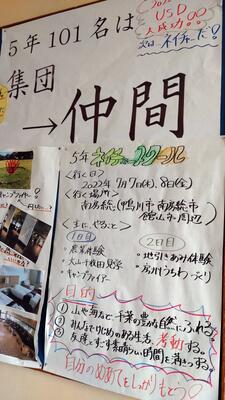 5年101名は
集団
→仲間
USD
大成功!!
次は ネイチャーだ!
キャンプファイヤー
5年 ネイチャースクール
<行く日>
2022年7月7日(木)、8日(金)
<行く場所>
南房総(鴨川市・南房総市
館山市周辺)
<主にやること>
1日目
・農業体験
・大山千枚田見学
・キャンプファイヤー
2日目
・地引きあみ体験
・房州うちわづくり
目的
① 山や海など千葉の豊かな自然にふれる。
② みんなでけじめのある生活を考動する。
③ 友達とすごす素晴らしい時間を満きつする。
自分のめあてをしっかりもとう